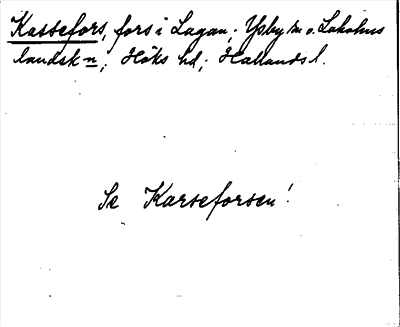 Kassefors, fors i Lagan; Ysby sn o. Laholms
landsk n; Höks hd; Hallands l.
Se Karseforsen!